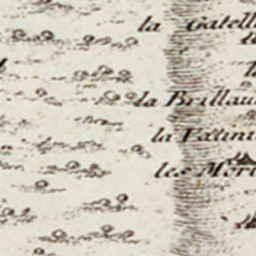 la Gatell
la Brillau
la Fatini
les Meri